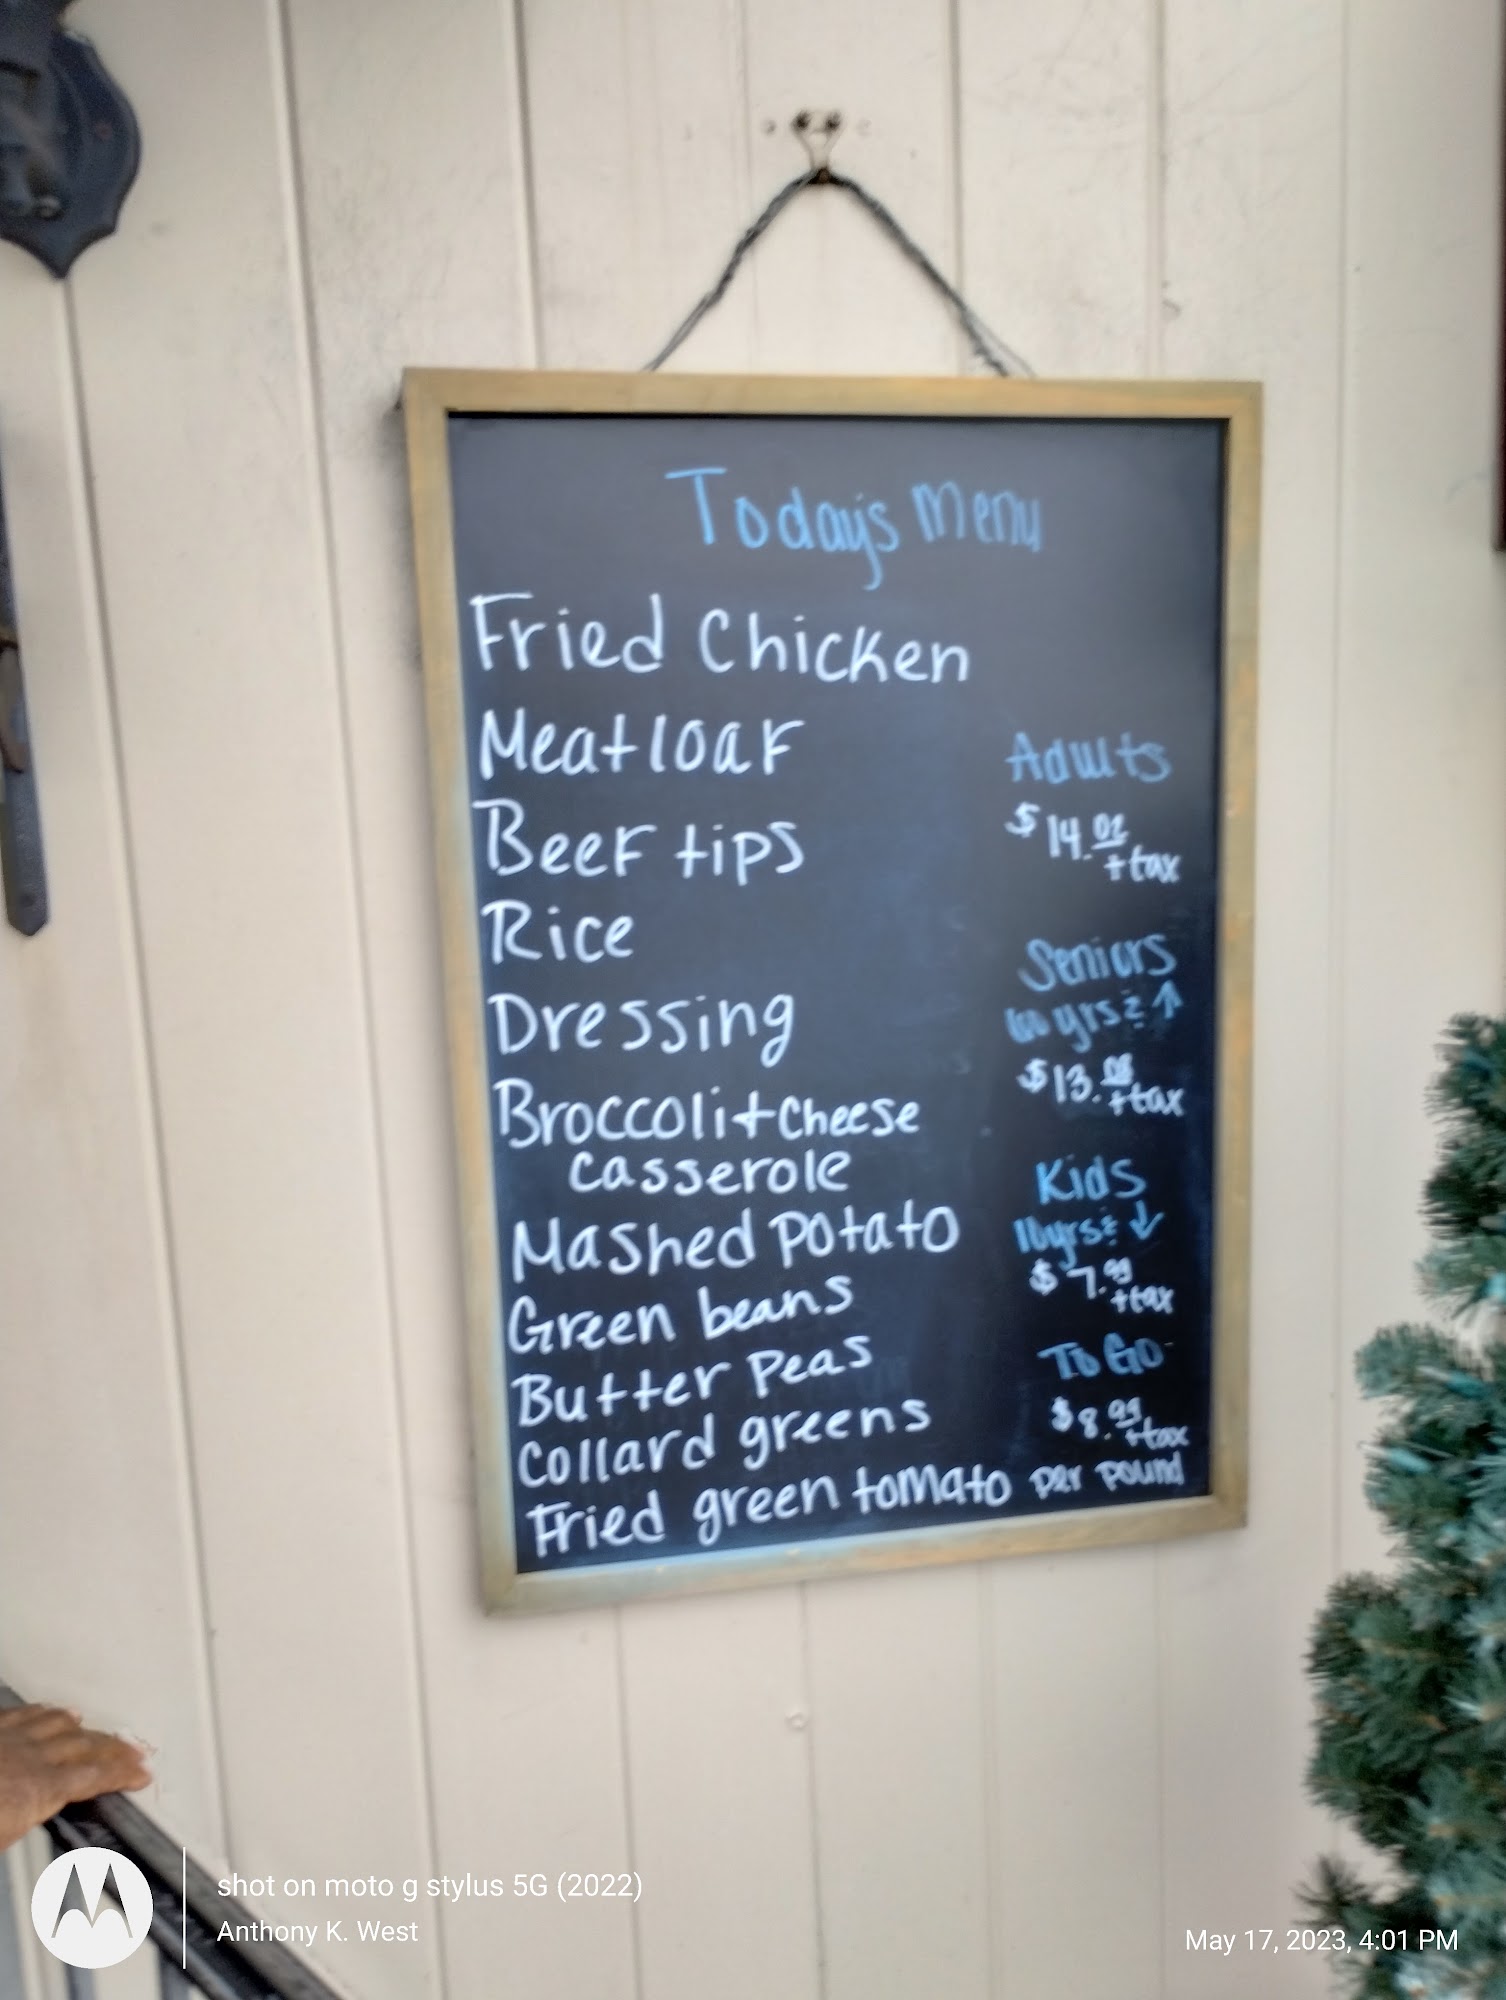 Today's Menu
Fried Chicken
Meatloaf
Beef tips
Rice
Dressing
Broccoli + Cheese
Casserole
Mashed Potato
Green beans
Butter Peas
Collard greens
Fried green tomato
Adults
$14.
+tax
Seniors
60 yrs ↑
$13.
+tax
Kids
10yrs ↓
$7.99
+tax
To Go
$8.99
+tax
per pound
shot on moto g stylus 5G (2022)
Anthony K. West
May 17, 2023, 4:01 PM